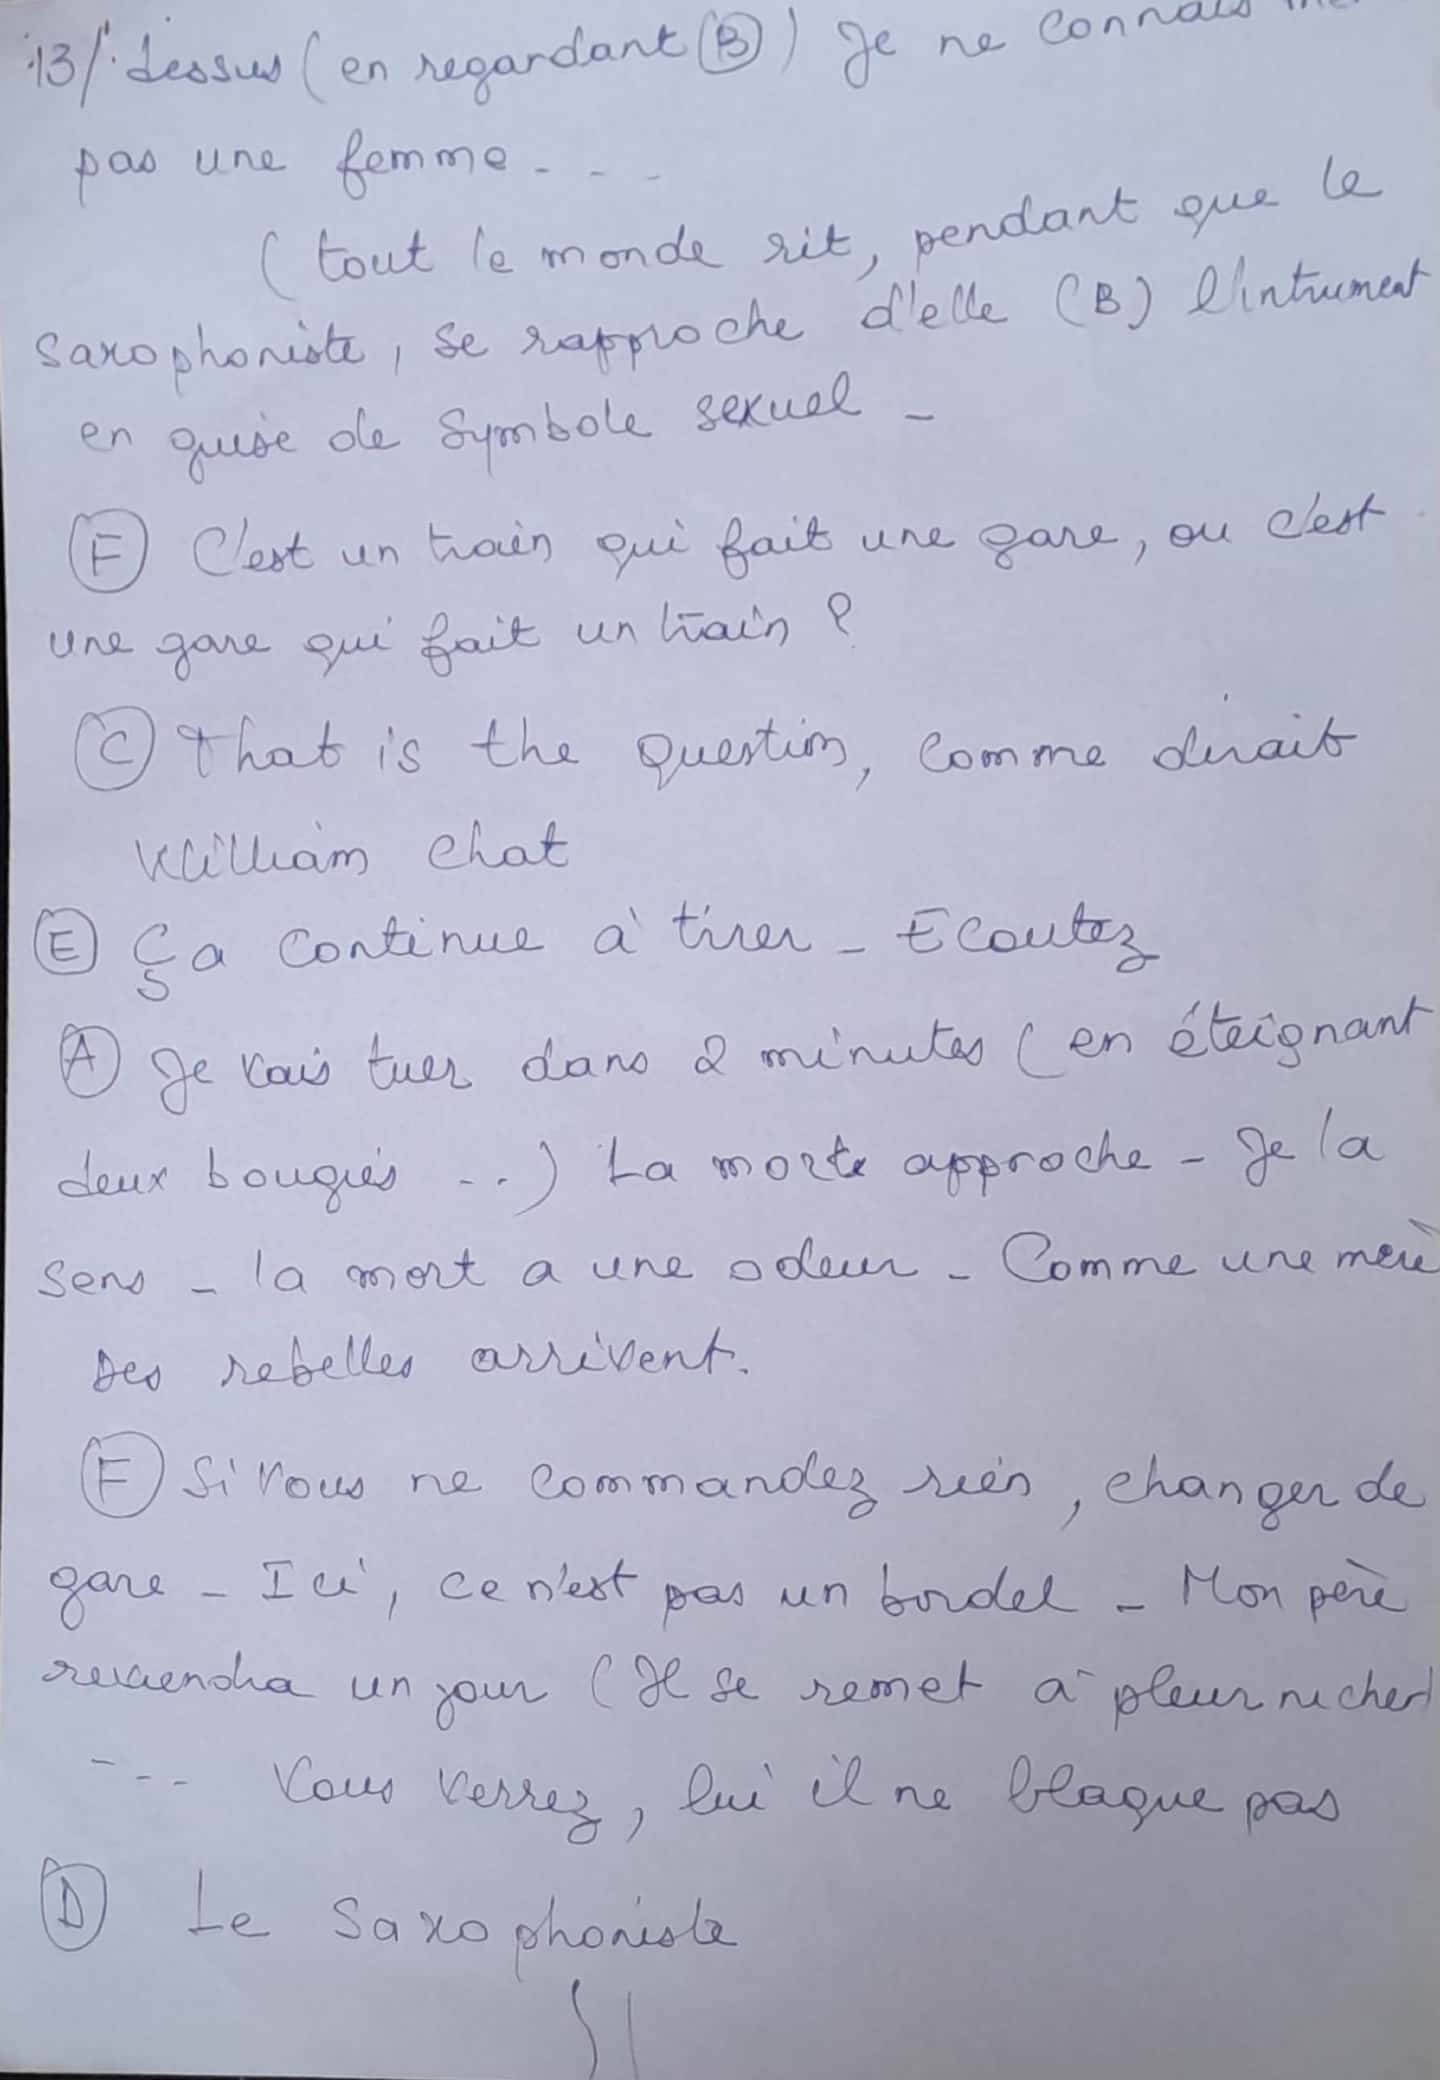 13/. dessus (en regardant (B)) Je ne connais
pas une femme - - -
(tout le monde rit, pendant que le
saxophoniste, se rapproche d'elle (B) l'intrument
en guise de symbole sexuel -
(F) C'est un train qui fait une gare, ou c'est
une gare qui fait un train ?
(C) That is the question, comme dirait
William chat
(E) Ça continue à tirer - Ecoutez
(A) Je vais tuer dans 2 minutes (en éteignant
deux bougies ...) La morte approche - Je la
sens - la mort a une odeur - Comme une mère
Des rebelles arrivent.
(F) Si vous ne commandez rien, changer de
gare - Ici, ce n'est pas un bordel - Mon père
reviendra un jour (Il se remet à pleurnicher)
- - - Vous verrez, lui il ne blague pas
(D) Le saxophoniste